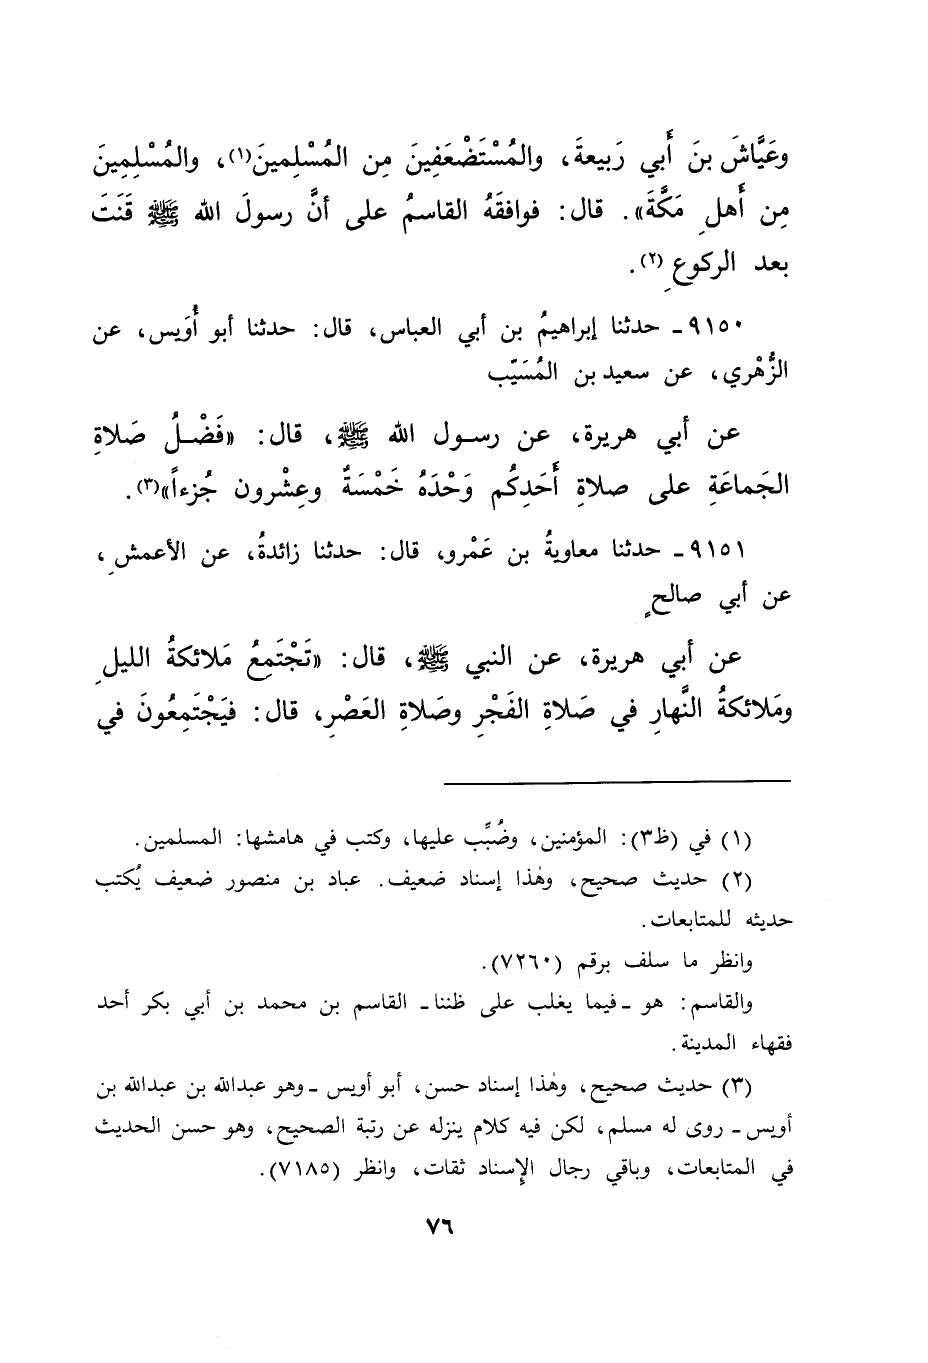 وعَيَّاشَ بنَ أَبي رَبيعةَ، والمُسْتَضْعَفِينَ مِن المُسْلِمينَ(١)، والمُسْلِمِينَ
مِن أَهلِ مَكَّةَ». قال: فوافقَهُ القاسمُ على أنَّ رسولَ الله ﷺ قَنَتَ
بعد الركوعِ(٢).
٩١٥٠ـ حدثنا إبراهيمُ بن أبي العباس، قال: حدثنا أبو أُوَيس، عن
الزُّهْري، عن سعيد بن المُسَيّب
عن أبي هريرة، عن رسول الله ﷺ، قال: «فَضْلُ صَلاةِ
الجَماعَةِ على صلاةِ أَحَدِكُم وَحْدَهُ خَمْسَةٌ وعِشْرون جُزءاً»(٣).
٩١٥١ـ حدثنا معاويةُ بن عَمْرو، قال: حدثنا زائدةُ، عن الأعمشِ،
عن أبي صالحٍ
عن أبي هريرة، عن النبي ﷺ، قال: «تَجْتَمِعُ مَلائكةُ الليلِ
ومَلائكةُ النَّهارِ في صَلاةِ الفَجْرِ وصَلاةِ العَصْرِ، قال: فيَجْتَمِعُونَ في
(١) في (ظ٣): المؤمنين، وضُبِّب عليها، وكتب في هامشها: المسلمين.
(٢) حديث صحيح، وهٰذا إسناد ضعيف. عباد بن منصور ضعيف يُكتب
حديثه للمتابعات.
وانظر ما سلف برقم (٧٢٦٠).
والقاسم: هو ـ فيما يغلب على ظننا ـ القاسم بن محمد بن أبي بكر أحد
فقهاء المدينة.
(٣) حديث صحيح، وهٰذا إسناد حسن، أبو أويس ـ وهو عبدالله بن عبدالله بن
أويس ـ روى له مسلم، لكن فيه كلام ينزله عن رتبة الصحيح، وهو حسن الحديث
في المتابعات، وباقي رجال الإسناد ثقات، وانظر (٧١٨٥).
٧٦